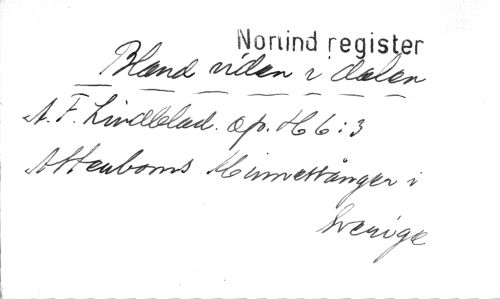 Norlind register
Bland viden i dalen
A. F. Lindblad. op. H 6:3
Attenboms Minnesånger i
Sverige